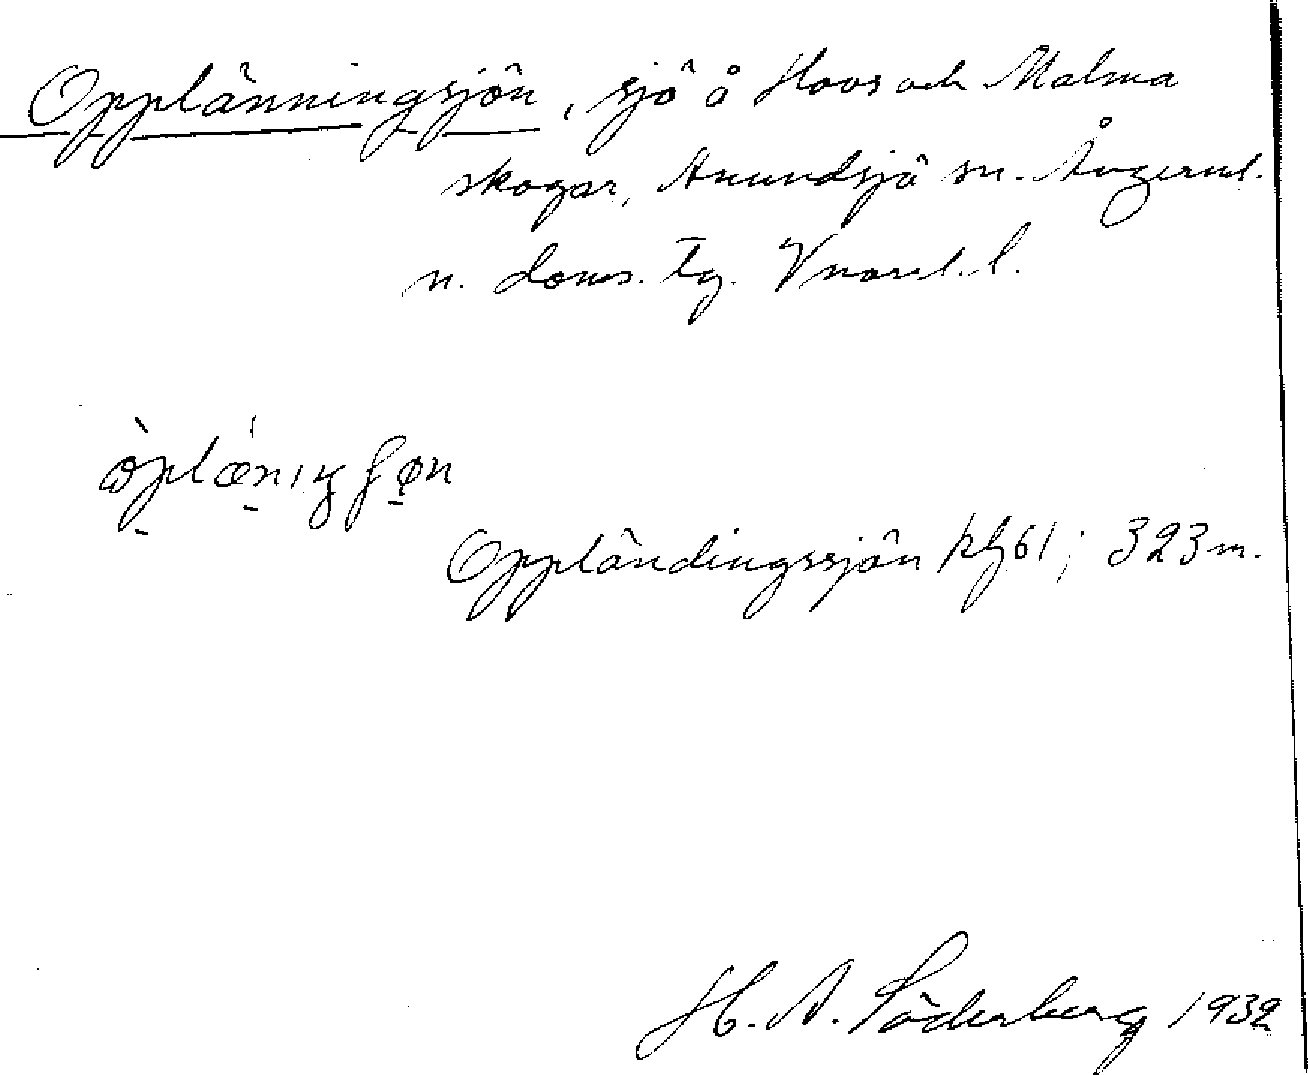 Opplänningsjön, sjö å Hoos och Malma
skogar, Anundsjö sn. Ångerml.
n. doms. tg. Vnorrl. l.
Oppländingssjön kbl 61; 323 m.
H. A. Söderberg 1932